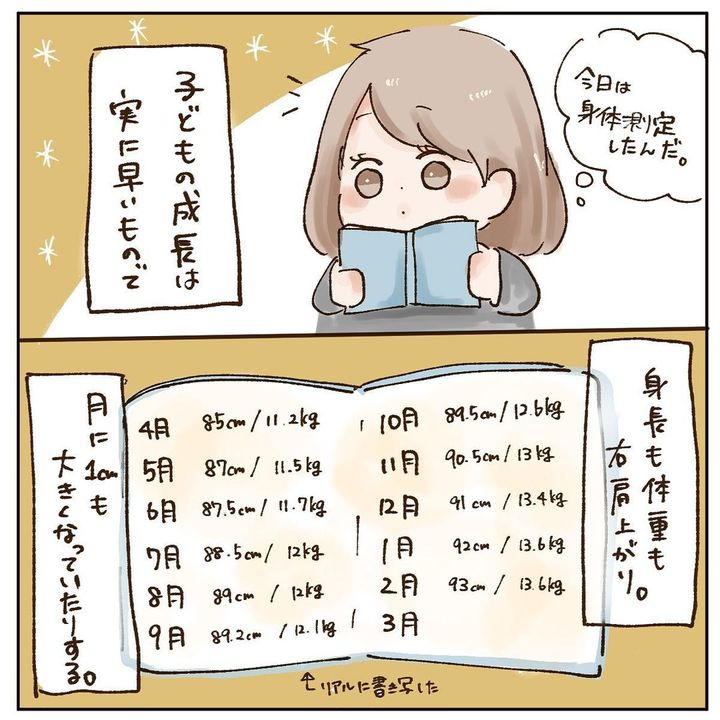 今日は
身体測定
したんだ。
子どもの成長は
実に早いもので
身長も体重も
右肩上がり。
4月 85cm/11.2kg
5月 87cm/11.5kg
6月 87.5cm/11.7kg
7月 88.5cm/12kg
8月 89cm/12kg
9月 89.2cm/12.1kg
10月 89.5cm/12.6kg
11月 90.5cm/13kg
12月 91cm/13.4kg
1月 92cm/13.6kg
2月 93cm/13.6kg
3月
月に1cmも
大きくなっていたりする。
↑リアルに書き写した